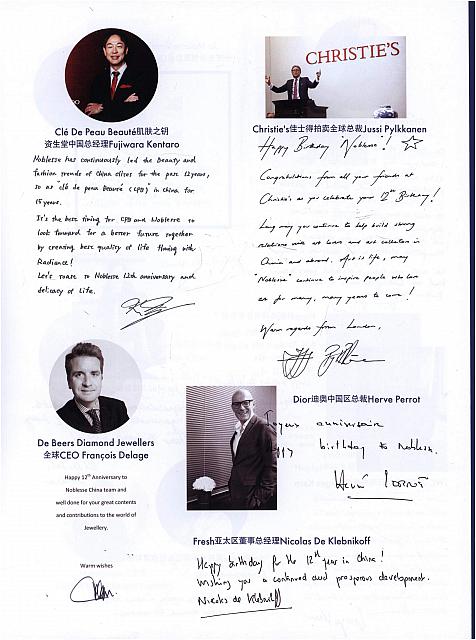 Clé De Peau Beauté肌肤之钥
资生堂中国总经理Fujiwara Kentaro
Noblesse has continuously led the Beauty and
fashion trends of China elites for the past 12 years,
so as "clé de peau Beauté (CPB)" in China for
15 years.
It's the best timing for CPB and Noblesse to
look forward for a better future together
by creating best quality of life flowing with
Radiance!
Let's toast to Noblesse 12th anniversary and
delicacy of Life.
CHRISTIE'S
Christie's佳士得拍卖全球总裁Jussi Pylkkanen
Happy Birthday "Noblesse"!
Congratulations from all your friends at
Christie's as you celebrate your 12th Birthday!
Long may you continue to help build strong
relations with art lovers and art collectors in
China and abroad. Art is life, may
"Noblesse" continue to inspire people who love
art for many, many years to come!
Warm regards from London,
De Beers Diamond Jewellers
全球CEO François Delage
Happy 12th Anniversary to
Noblesse China team and
well done for your great contents
and contributions to the world of
Jewellery.
Warm wishes
Dior迪奥中国区总裁Herve Perrot
Joyeux anniversaire
Happy birthday to Noblesse.
Hervé PERROT
Fresh亚太区董事总经理Nicolas De Klebnikoff
Happy birthday for the 12th year in China!
Wishing you a continued and prosperous development.
Nicolas de Klebnikoff